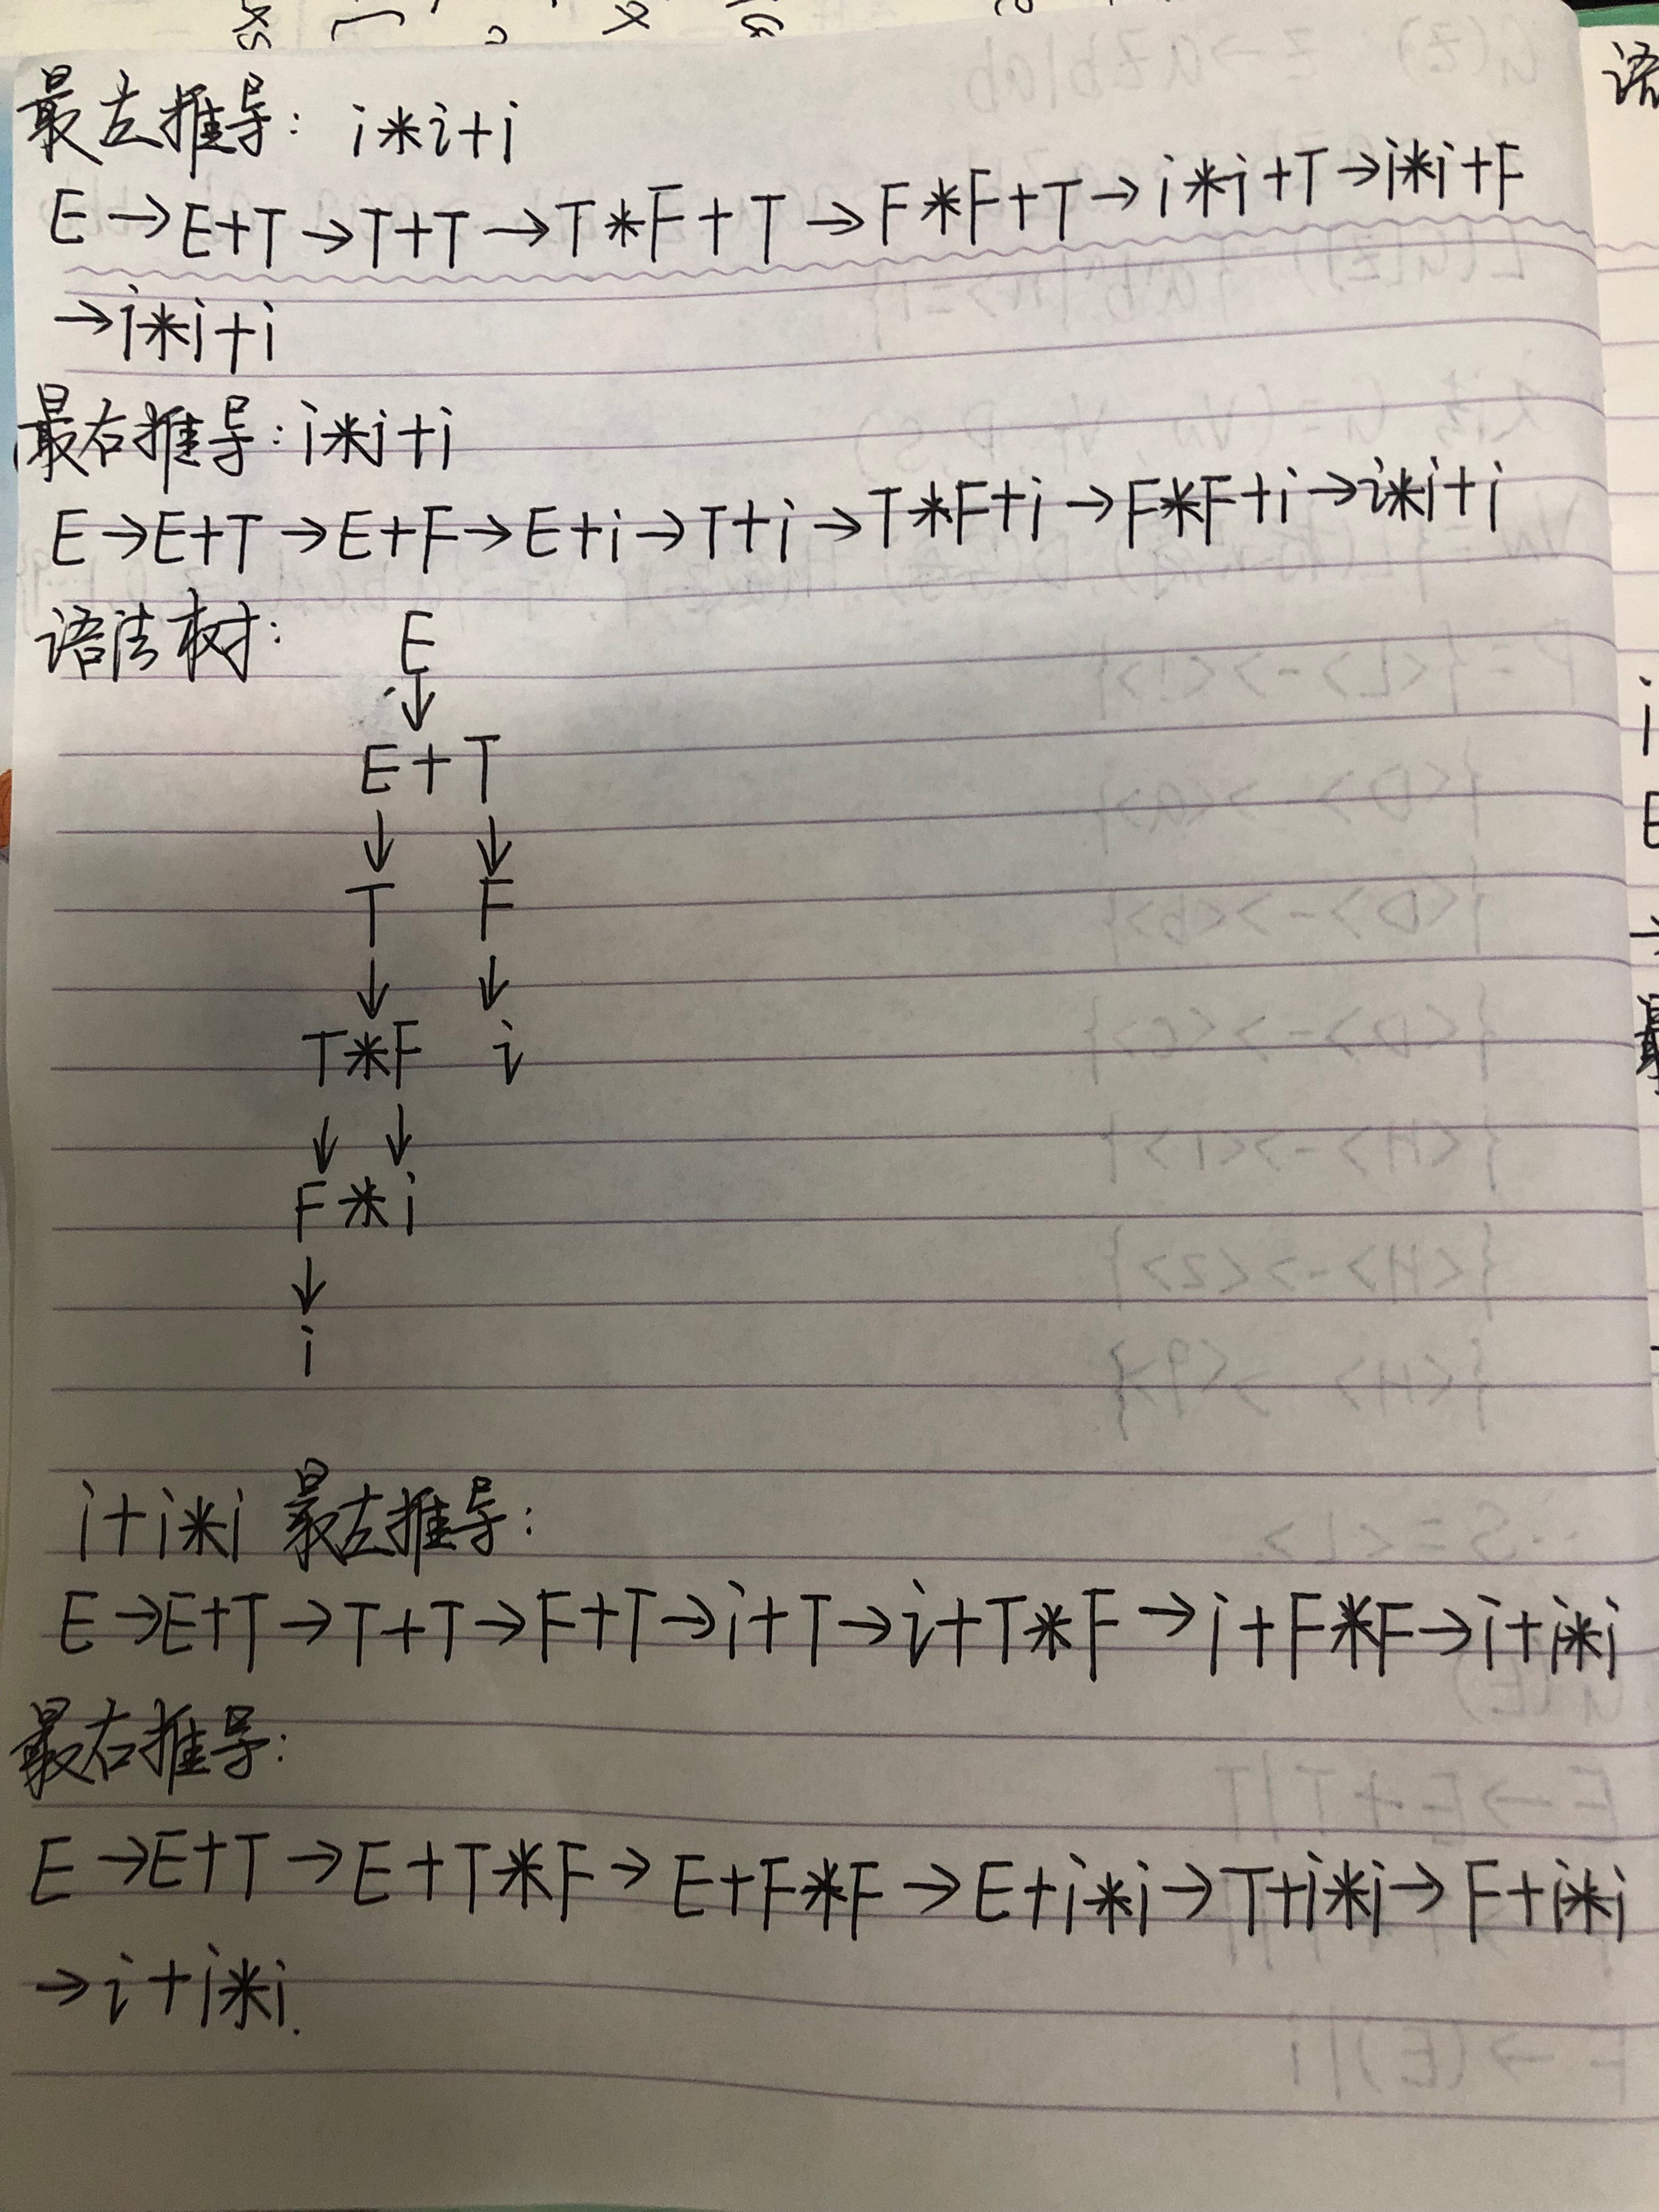 最左推导: i*i+i
E→E+T→T+T→T*F+T→F*F+T→i*i+T→i*i+F
→i*i+i
最右推导: i*i+i
E→E+T→E+F→E+i→T+i→T*F+i→F*F+i→i*i+i
语法树: E
↓
E+T
↓ ↓
T F
↓ ↓
T*F i
↓ ↓
F*i
↓
i
i+i*i 最左推导:
E→E+T→T+T→F+T→i+T→i+T*F→i+F*F→i+i*i
最右推导:
E→E+T→E+T*F→E+F*F→E+i*i→T+i*i→F+i*i
→i+i*i.
语
i
E
→